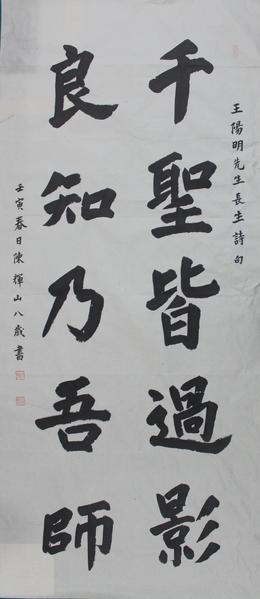 王陽明先生長生詩句
千聖皆過影
良知乃吾師
壬寅春日陳輝山八歲書